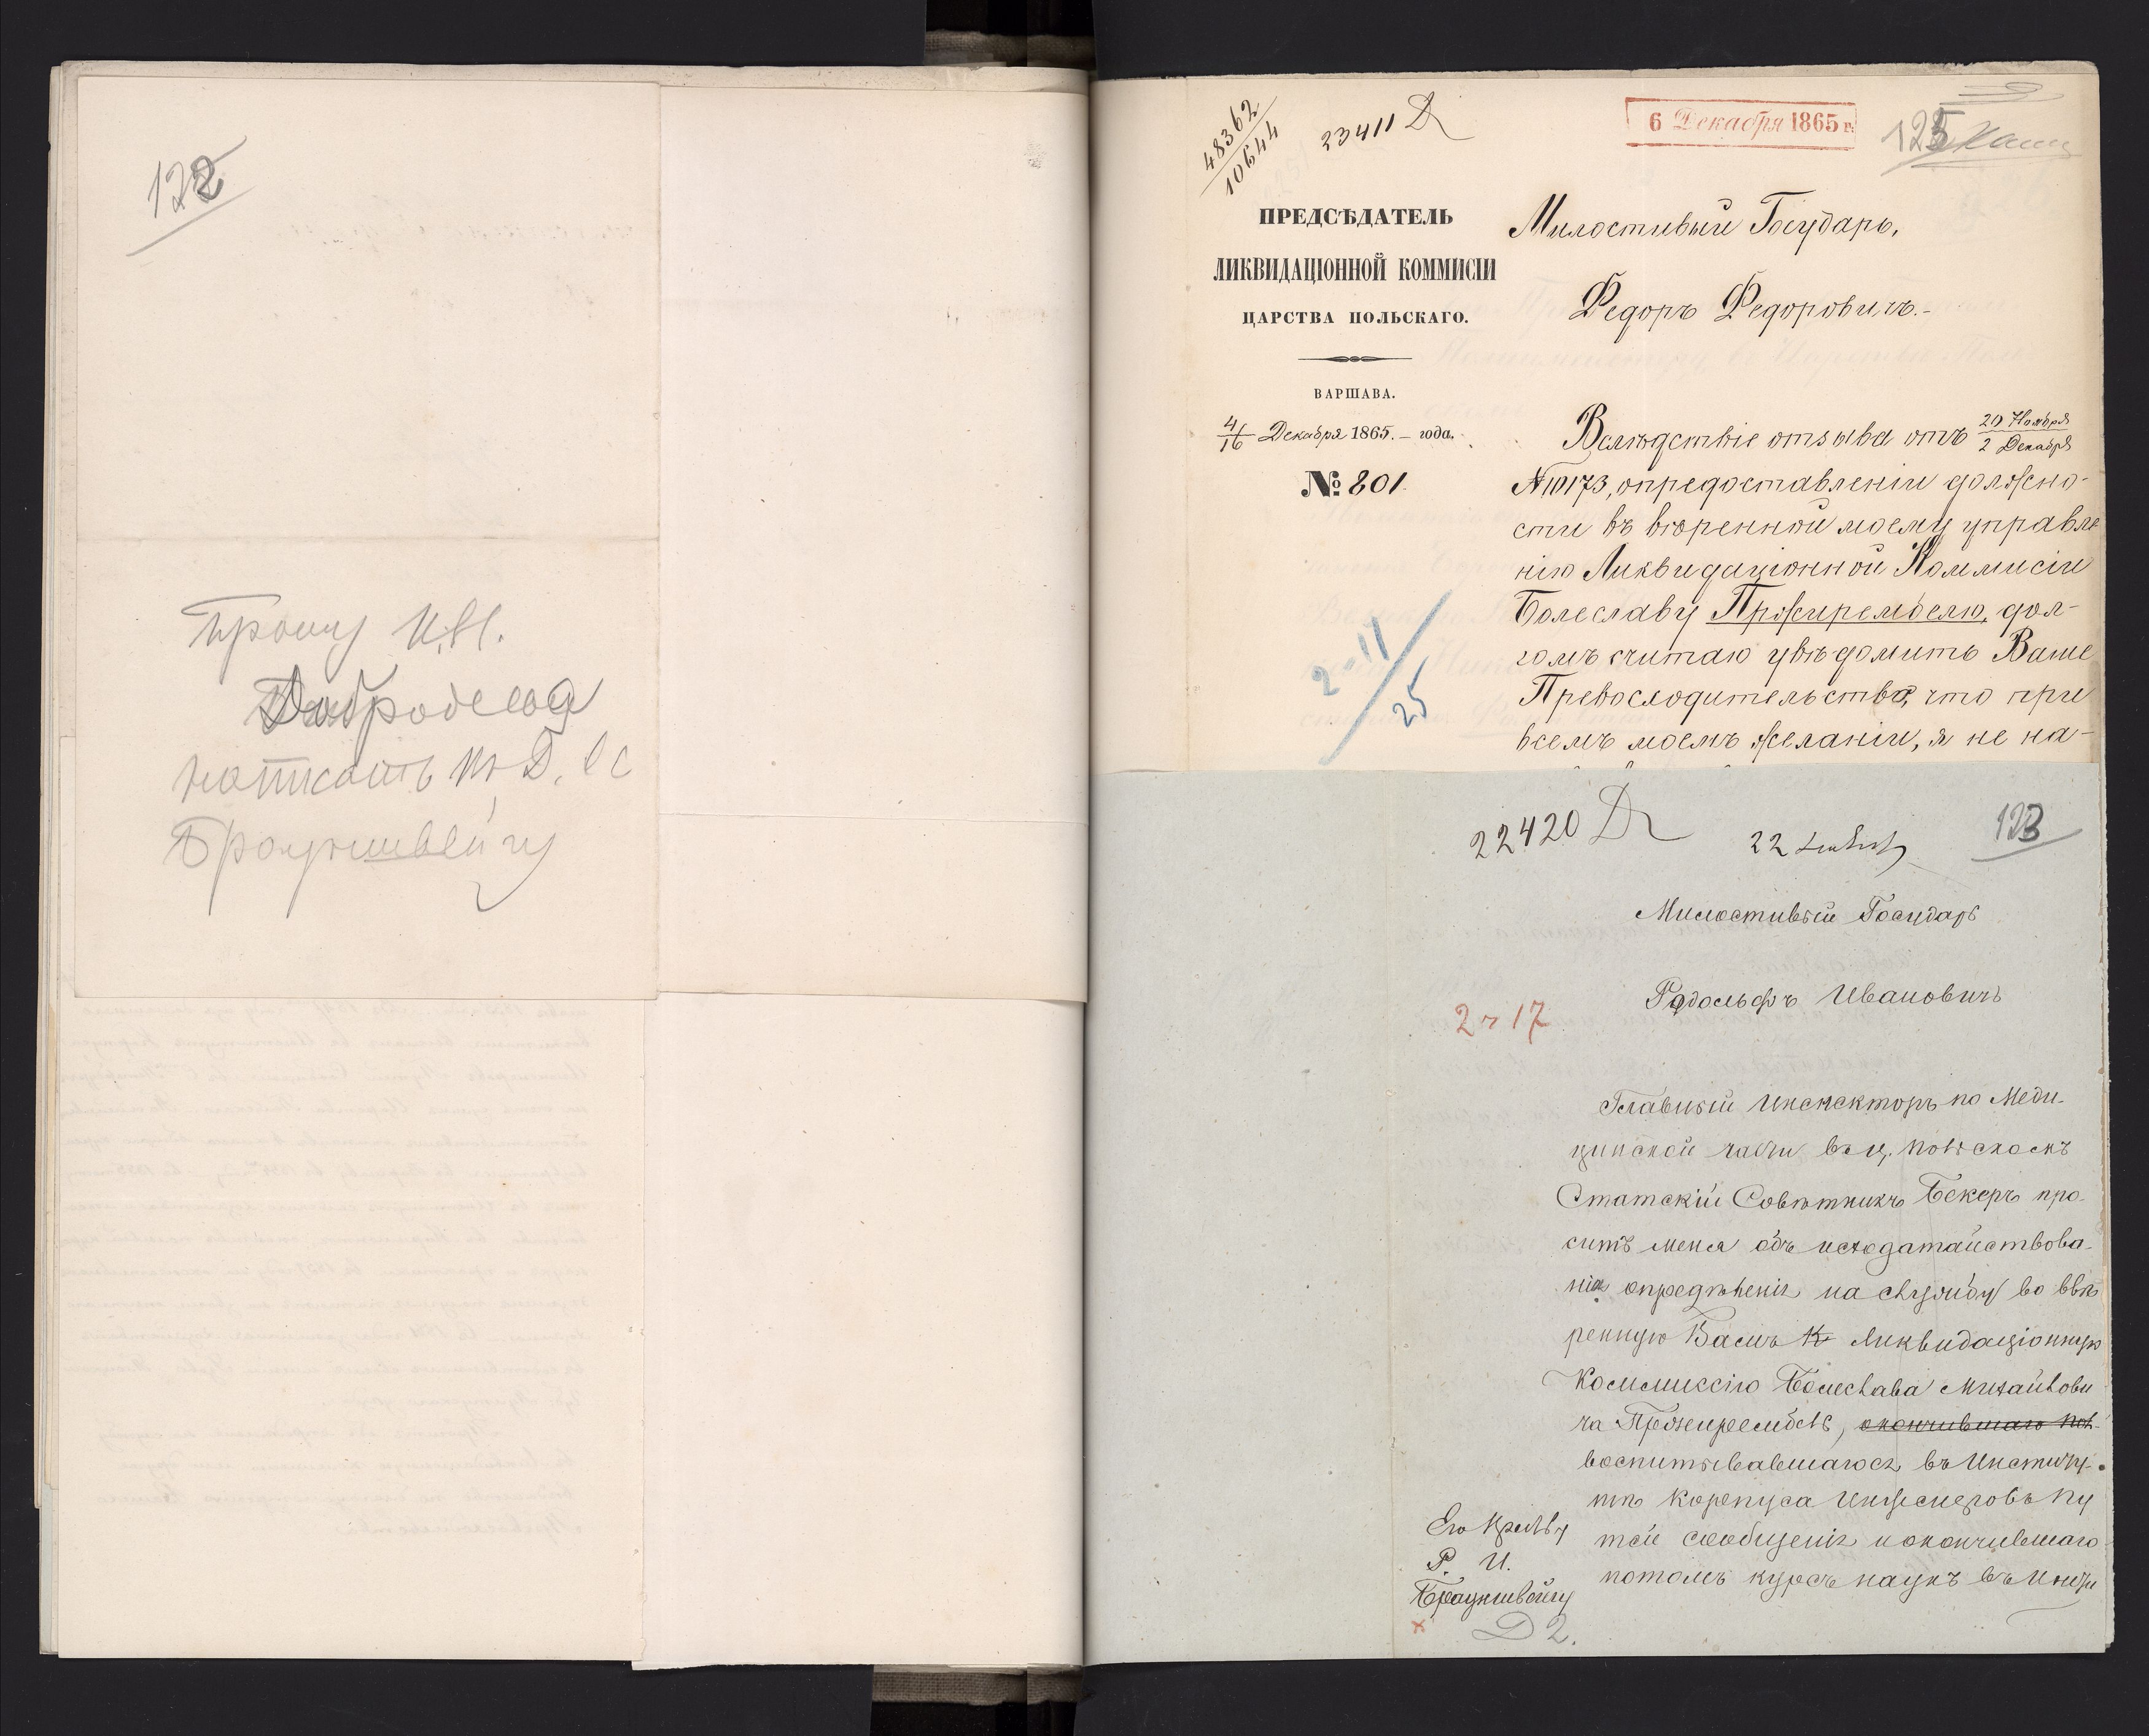 122
Прошу И.И.
Добродеева
написать къ Д. С. С.
Брауншвейгу
48362
10644
23411
6 Декабря 1865 г.
125
ПРЕДСѢДАТЕЛЬ
ЛИКВИДАЦІОННОЙ КОММИСІИ
ЦАРСТВА ПОЛЬСКАГО.
ВАРШАВА.
4/16 Декабря 1865.– года.
№ 801.
2-11
25
Милостивый Государь,
Федоръ Федоровичъ.-
Вслѣдствіе отзыва отъ 20 Ноября / 2 Декабря
№10173, о предоставленіи должно-
сти въ ввѣренной моему управле
нію Ликвидаціонной Коммисіи
Болеславу Пржирембелю, дол-
гомъ считаю увѣдомить Ваше
Превосходительство, что при
всемъ моемъ желаніи, я не на-
22420
22
123
Милостивый Государь
Родольфъ Ивановичъ
2 ч 17
Главный Инспекторъ по Меди-
цинской части въ Ц. Польскомъ
Статскій Совѣтникъ Бекеръ про-
ситъ меня объ исходатайствова-
ніи опредѣленія на службу во ввѣ
ренную Вамъ К Ликвидаціонную
Коммиссію Болеслава Михайлови
ча Пржирембеля, окончившаго
воспитывавшагося въ Институ-
тѣ Корпуса Инженеровъ Пу
тей сообщенія и окончившаго
потомъ курсъ наукъ въ Инжи
Его Прев-ву
Р. И.
Брауншвейгу
Д 2.